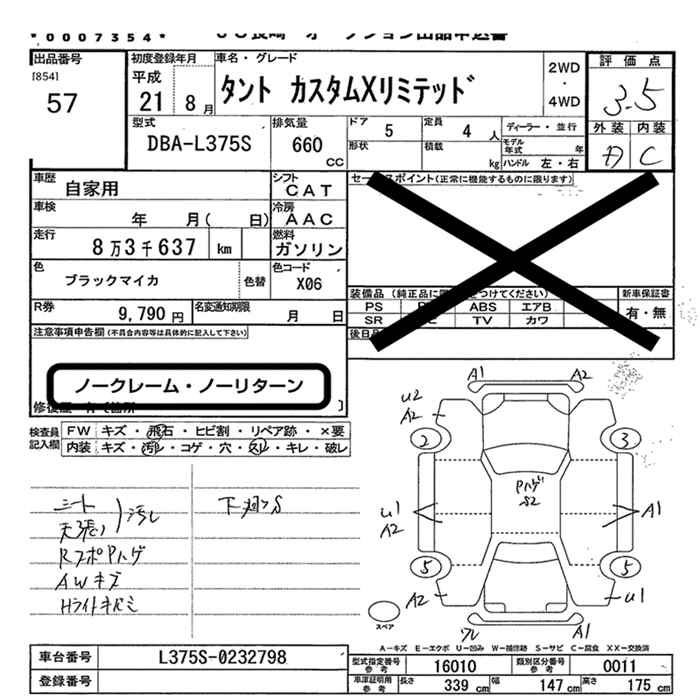 *0007354*
出品番号 初度登録年月 車名・グレード 評価点
[854]
57
平成
21 8月
タント カスタムXリミテッド
2WD
・
4WD
3.5
外装 内装
C
型式 排気量 ドア 5 定員 4人 ディーラー・並行
DBA-L375S 660 CC
形状 積載 kg モデル年式 年
ハンドル 左・右
車歴 自家用 シフト CAT
セールスポイント(正常に機能するものに限ります)
車検 年 月( 日) 冷房 AAC
走行 8万3千637 km 燃料 ガソリン
色 ブラックマイカ 色替 色コード X06
装備品(純正品に つけてください) 新車保証書
PS ABS エアB 有・無
SR TV カワ
R券 9,790円 名変通知期限 月 日
後日品
注意事項申告欄(不具合内容等は具体的に記入して下さい)
ノークレーム・ノーリターン
検査員記入欄 FW キズ・飛石・ヒビ割・リペア跡・×要
内装 キズ・汚レ・コゲ・穴・スレ・キレ・破レ
シート
天張り 汚レ
RスポPハゲ
AWキズ
Hライトキバミ
下廻りS
A1 A2
U2
A2
2 3
Pハゲ
S2
U1
A2
A1
5 5
A2 U1
ワレ A1
スペア
A―キズ E―エクボ U―凹み W―補修跡 S―サビ C―腐食 XX―交換済
車台番号 L375S-0232798 型式指定番号 参考 16010 類別区分番号 参考 0011
登録番号 車庫証明用 参考 長さ 339cm 幅 147cm 高さ 175cm